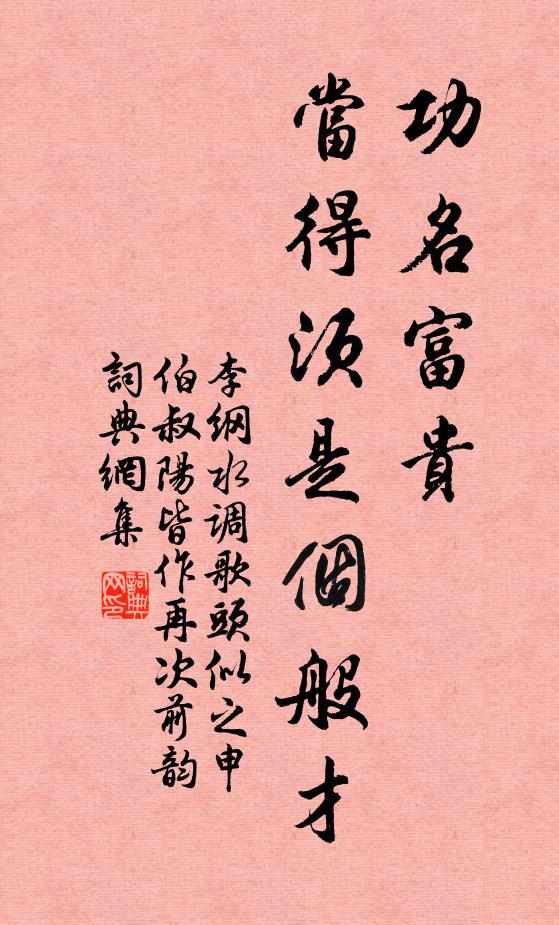 功名富貴
當得須是個般才
李纲水调歌頭似之申
伯叔陽皆作再次前韵
詞典網集
詞典网印